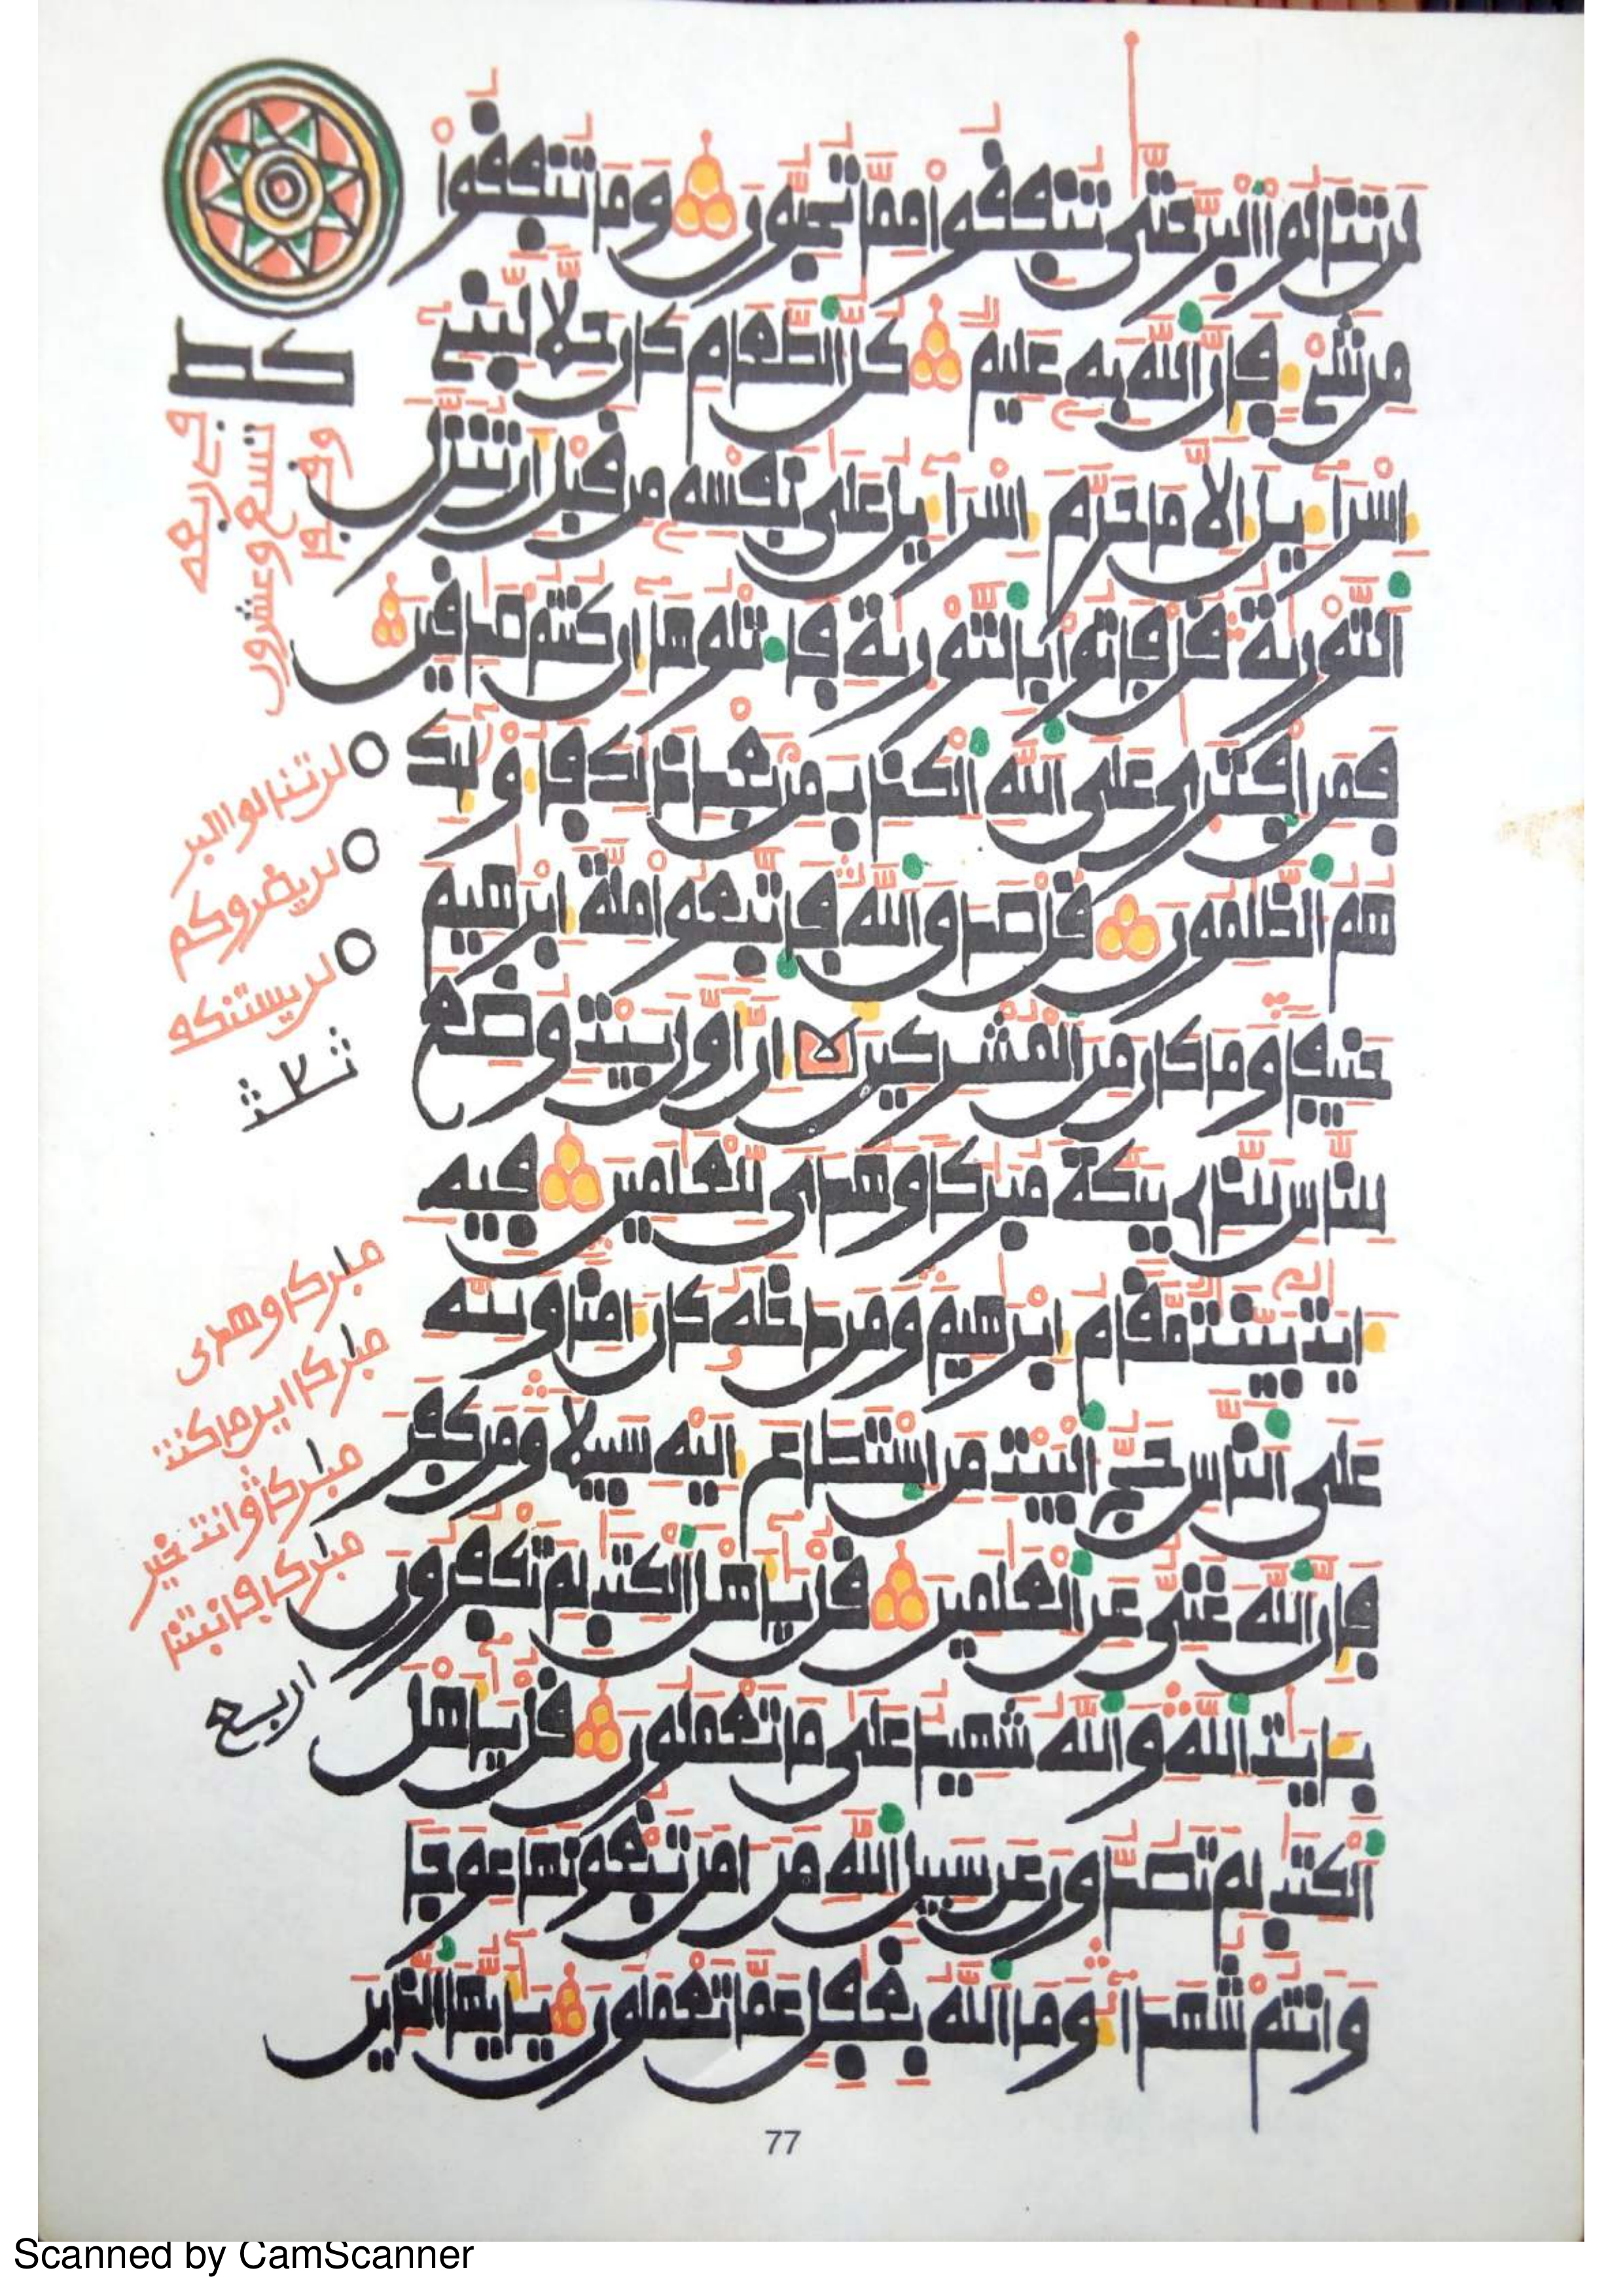 لن تنالوا البر حتى تنفقوا مما تحبون وما تنفقوا
من شيء فإن الله به عليم كل الطعام كان حلا لبني
إسراءيل إلا ما حرم إسراءيل على نفسه من قبل أن تنزل
التورية قل فاتوا بالتورية فاتلوها إن كنتم صدقين
فمن افترى على الله الكذب من بعد ذلك فأولئك
هم الظلمون قل صدق الله فاتبعوا ملة إبرهيم
حنيفا وما كان من المشركين إن أول بيت وضع
للناس للذي ببكة مبركا وهدى للعلمين فيه
ءايت بينت مقام إبرهيم ومن دخله كان ءامنا ولله
على الناس حج البيت من استطاع إليه سبيلا ومن كفر
فإن الله غني عن العلمين قل يأهل الكتب لم تكفرون
بءايت الله والله شهيد على ما تعملون قل يأهل
الكتب لم تصدون عن سبيل الله من ءامن تبغونها عوجا
وأنتم شهداء وما الله بغفل عما تعملون يأيها الذين
كط
تسع وعشرون
لن تنالوا البر
لن يضروكم
لن يستنكف
ثلاث
مبركا وهدى
مبركا اين ما كنت
مبركا وانت خير
مبركا فانبتنا
اربع
77
Scanned by CamScanner